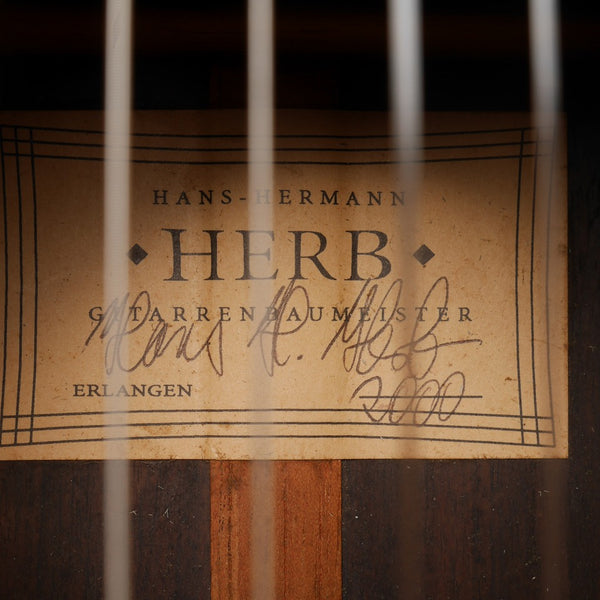 HANS-HERMANN
HERB
GITARRENBAUMEISTER
Hans H. Herb
ERLANGEN 2000